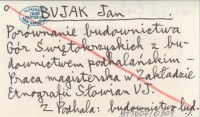 BUJAK Jan
Porównanie budownictwa
Gór Świętokrzyskich z bu-
downictwem podhalańskim –
Praca magisterska w Zakładzie
Etnografii Słowian UJ.
Z Podhala: budownictwo lud.